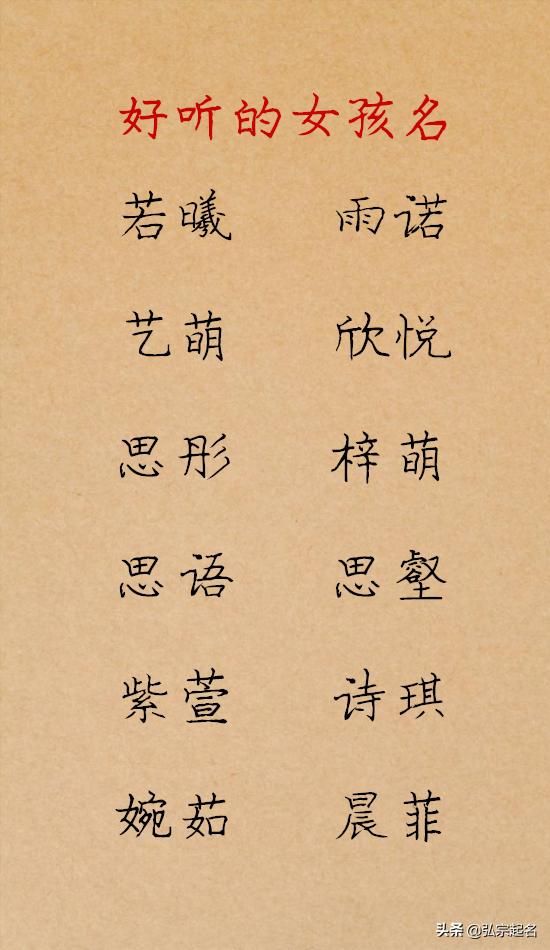 好听的女孩名
若曦 雨诺
艺萌 欣悦
思彤 梓萌
思语 思壑
紫萱 诗琪
婉茹 晨菲
头条 @弘宗起名